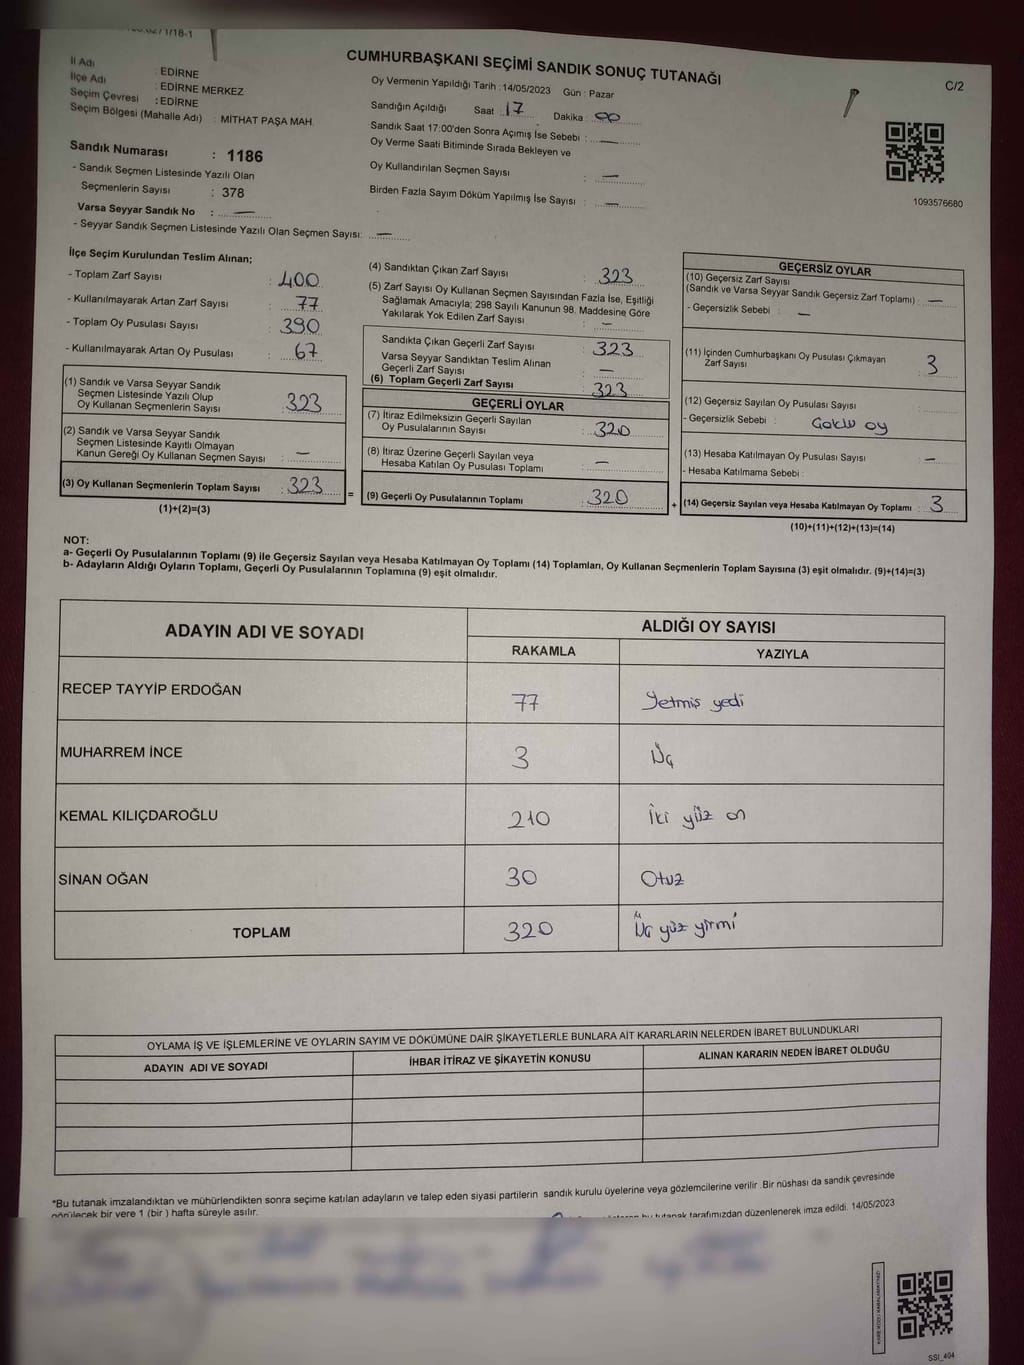 CUMHURBAŞKANI SEÇİMİ SANDIK SONUÇ TUTANAĞI
C/2
İl Adı : EDİRNE
İlçe Adı : EDİRNE MERKEZ
Seçim Çevresi : EDİRNE
Seçim Bölgesi (Mahalle Adı) : MİTHAT PAŞA MAH.
Sandık Numarası : 1186
- Sandık Seçmen Listesinde Yazılı Olan
Seçmenlerin Sayısı : 378
Varsa Seyyar Sandık No : —
- Seyyar Sandık Seçmen Listesinde Yazılı Olan Seçmen Sayısı: —
Oy Vermenin Yapıldığı Tarih : 14/05/2023 Gün : Pazar
Sandığın Açıldığı Saat : 17 Dakika : 00
Sandık Saat 17:00'den Sonra Açımış İse Sebebi : —
Oy Verme Saati Bitiminde Sırada Bekleyen ve
Oy Kullandırılan Seçmen Sayısı : —
Birden Fazla Sayım Döküm Yapılmış İse Sayısı : —
1093576680
İlçe Seçim Kurulundan Teslim Alınan;
- Toplam Zarf Sayısı : 400
- Kullanılmayarak Artan Zarf Sayısı : 77
- Toplam Oy Pusulası Sayısı : 390
- Kullanılmayarak Artan Oy Pusulası : 67
(1) Sandık ve Varsa Seyyar Sandık
Seçmen Listesinde Yazılı Olup
Oy Kullanan Seçmenlerin Sayısı : 323
(2) Sandık ve Varsa Seyyar Sandık
Seçmen Listesinde Kayıtlı Olmayan
Kanun Gereği Oy Kullanan Seçmen Sayısı : —
(3) Oy Kullanan Seçmenlerin Toplam Sayısı : 323
(1)+(2)=(3)
=
(4) Sandıktan Çıkan Zarf Sayısı : 323
(5) Zarf Sayısı Oy Kullanan Seçmen Sayısından Fazla İse, Eşitliği
Sağlamak Amacıyla; 298 Sayılı Kanunun 98. Maddesine Göre
Yakılarak Yok Edilen Zarf Sayısı : —
Sandıkta Çıkan Geçerli Zarf Sayısı : 323
Varsa Seyyar Sandıktan Teslim Alınan
Geçerli Zarf Sayısı : —
(6) Toplam Geçerli Zarf Sayısı : 323
GEÇERLİ OYLAR
(7) İtiraz Edilmeksizin Geçerli Sayılan
Oy Pusulalarının Sayısı : 320
(8) İtiraz Üzerine Geçerli Sayılan veya
Hesaba Katılan Oy Pusulası Toplamı : —
(9) Geçerli Oy Pusulalarının Toplamı : 320
+
GEÇERSİZ OYLAR
(10) Geçersiz Zarf Sayısı
(Sandık ve Varsa Seyyar Sandık Geçersiz Zarf Toplamı) : —
- Geçersizlik Sebebi : —
(11) İçinden Cumhurbaşkanı Oy Pusulası Çıkmayan
Zarf Sayısı : 3
(12) Geçersiz Sayılan Oy Pusulası Sayısı :
- Geçersizlik Sebebi : oy
(13) Hesaba Katılmayan Oy Pusulası Sayısı : —
- Hesaba Katılmama Sebebi :
(14) Geçersiz Sayılan veya Hesaba Katılmayan Oy Toplamı : 3
(10)+(11)+(12)+(13)=(14)
NOT:
a- Geçerli Oy Pusulalarının Toplamı (9) ile Geçersiz Sayılan veya Hesaba Katılmayan Oy Toplamı (14) Toplamları, Oy Kullanan Seçmenlerin Toplam Sayısına (3) eşit olmalıdır. (9)+(14)=(3)
b- Adayların Aldığı Oyların Toplamı, Geçerli Oy Pusulalarının Toplamına (9) eşit olmalıdır.
ADAYIN ADI VE SOYADI ALDIĞI OY SAYISI
RAKAMLA YAZIYLA
RECEP TAYYİP ERDOĞAN 77 Yetmiş yedi
MUHARREM İNCE 3 Üç
KEMAL KILIÇDAROĞLU 210 İki yüz on
SİNAN OĞAN 30 Otuz
TOPLAM 320 Üç yüz yirmi
OYLAMA İŞ VE İŞLEMLERİNE VE OYLARIN SAYIM VE DÖKÜMÜNE DAİR ŞİKAYETLERLE BUNLARA AİT KARARLARIN NELERDEN İBARET BULUNDUKLARI
ADAYIN ADI VE SOYADI İHBAR İTİRAZ VE ŞİKAYETİN KONUSU ALINAN KARARIN NEDEN İBARET OLDUĞU
*Bu tutanak imzalandıktan ve mühürlendikten sonra seçime katılan adayların ve talep eden siyasi partilerin sandık kurulu üyelerine veya gözlemcilerine verilir .Bir nüshası da sandık çevresinde
görülecek bir yere 1 (bir ) hafta süreyle asılır.
bu tutanak tarafımızdan düzenlenerek imza edildi. 14/05/2023
SSI_404